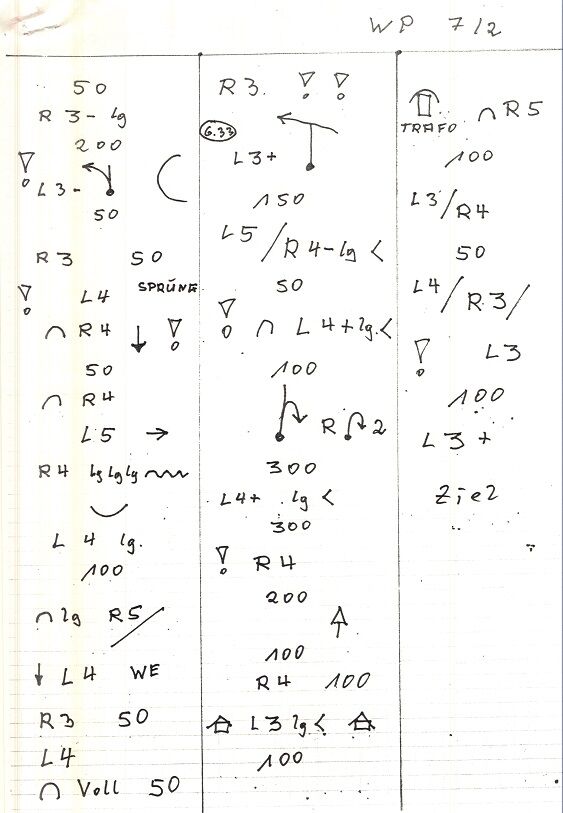 WP 7/2
50
R 3- lg
200
! L3-
50
R3 50
! L4 SPRÜNGE
∩ R4 ↓ !
50
∩ R4
L5 →
R4 lg lg lg
L 4 lg.
100
∩ lg R5/
↓ L4 WE
R3 50
L4
∩ Voll 50
R3. ! !
6.33
L3+
150
L5/R4-lg <
50
! ∩ L4+lg.<
100
R 2
300
L4+ lg <
300
! R4
200
↑
100
R4 100
L3 lg <
100
TRAFO ∩ R5
100
L3/R4
50
L4/R3/
! L3
100
L3+
Ziel